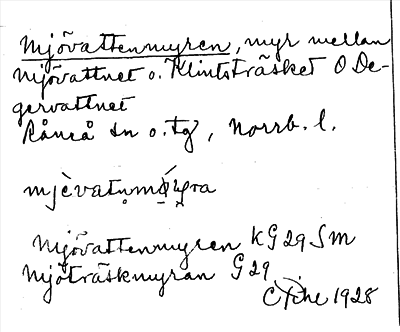 Mjövattenmyren, myr mellan
Mjövattnet o. Klintsträsket O De-
gervattnet
Råneå sn o. tg, Norrb. l.
Mjövattenmyren KG 29 SM
Mjöträskmyran G 29
1928